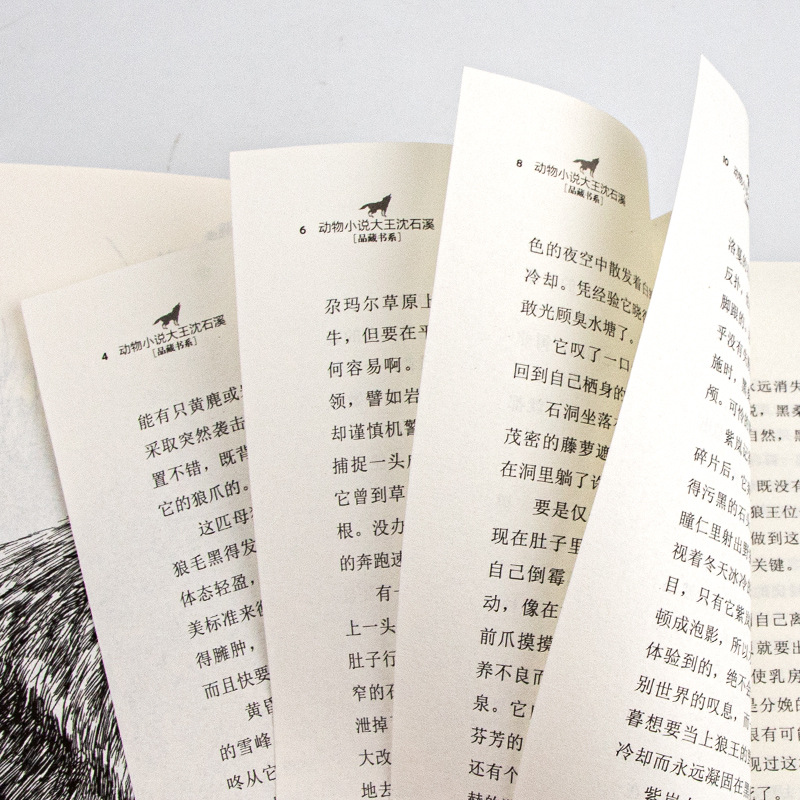 4 动物小说大王沈石溪
[品藏书系]
能有只黄麂或
采取突然袭击
置不错，既背
它的狼爪的。
这匹母
狼毛黑得发
体态轻盈，
美标准来
得臃肿，
而且快要
黄昏
的雪峰
咚从它
6 动物小说大王沈石溪
[品藏书系]
尕玛尔草原上
牛，但要在平
何容易啊。
领，譬如岩
却谨慎机警
捕捉一头
它曾到草
根。没办
的奔跑速
有一
上一头
肚子行
窄的石
泄掉
大改
地去
8 动物小说大王沈石溪
[品藏书系]
色的夜空中散发着白
冷却。凭经验它晓得
敢光顾臭水塘了。
它叹了一口
回到自己栖身的
石洞坐落
茂密的藤萝遮
在洞里躺了许
要是仅
现在肚子里
自己倒霉
动，像在
前爪摸摸
养不良而
泉。它
芬芳的
还有个
10 动物小说大王沈石溪
反扑，
脚跟的
乎没有
施时，黑
颅。可
紫岚
碎片后，它
得污黑的石
瞳仁里射出
视着冬天冰冷
目，只有它紫岚
顿成泡影，所以
体验到的，绝不
别世界的叹息，而
暮想要当上狼王的
冷却而永远凝固在黑
紫岚
永远消失
说，黑桑
自然，黑
既没有
狼王位
做到这
关键。
自己离
就要出
使乳房
是分娩的
很有可能
见过这
死了。